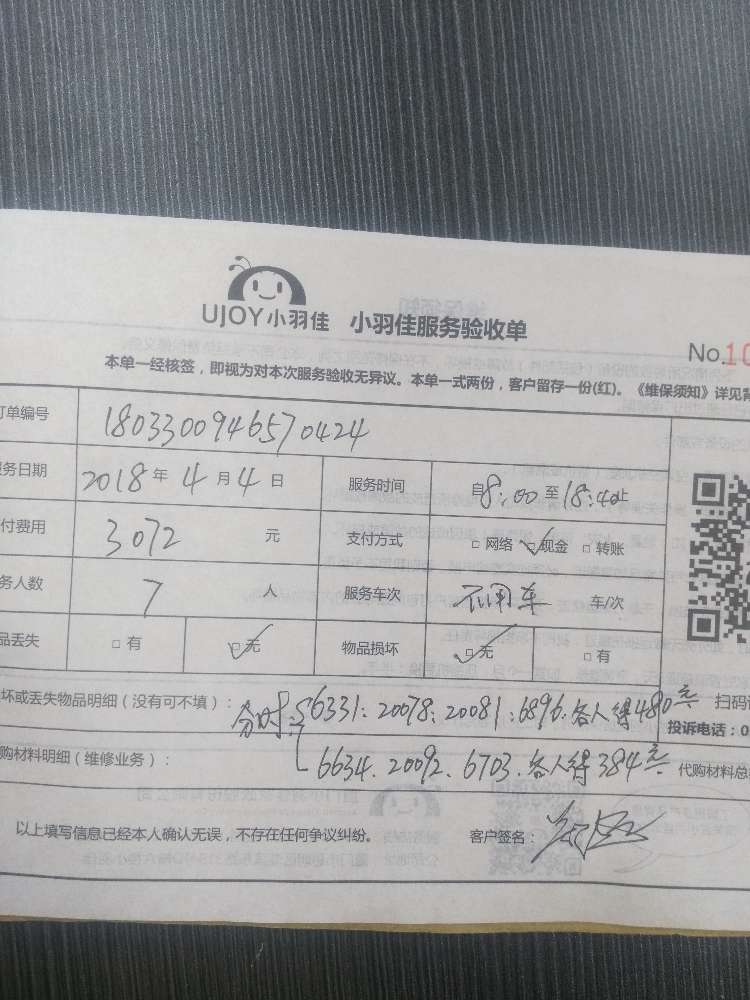 UJOY小羽佳 小羽佳服务验收单
No.10
本单一经核签，即视为对本次服务验收无异议。本单一式两份，客户留存一份(红)。《维保须知》详见背
订单编号 1803300946570424
服务日期 2018年4月4日 服务时间 自8:00至18:40止
付费用 3072 元 支付方式 □网络 ☑现金 □转账
务人数 7 人 服务车次 不用车 车/次
品丢失 □有 ☑无 物品损坏 ☑无 □有
坏或丢失物品明细（没有可不填）： 6331:20078:20081:6896.各人得480元 扫码
投诉电话：0
购材料明细（维修业务）： 6634.20092.6703.各人得384元 代购材料总
以上填写信息已经本人确认无误，不存在任何争议纠纷。 客户签名：